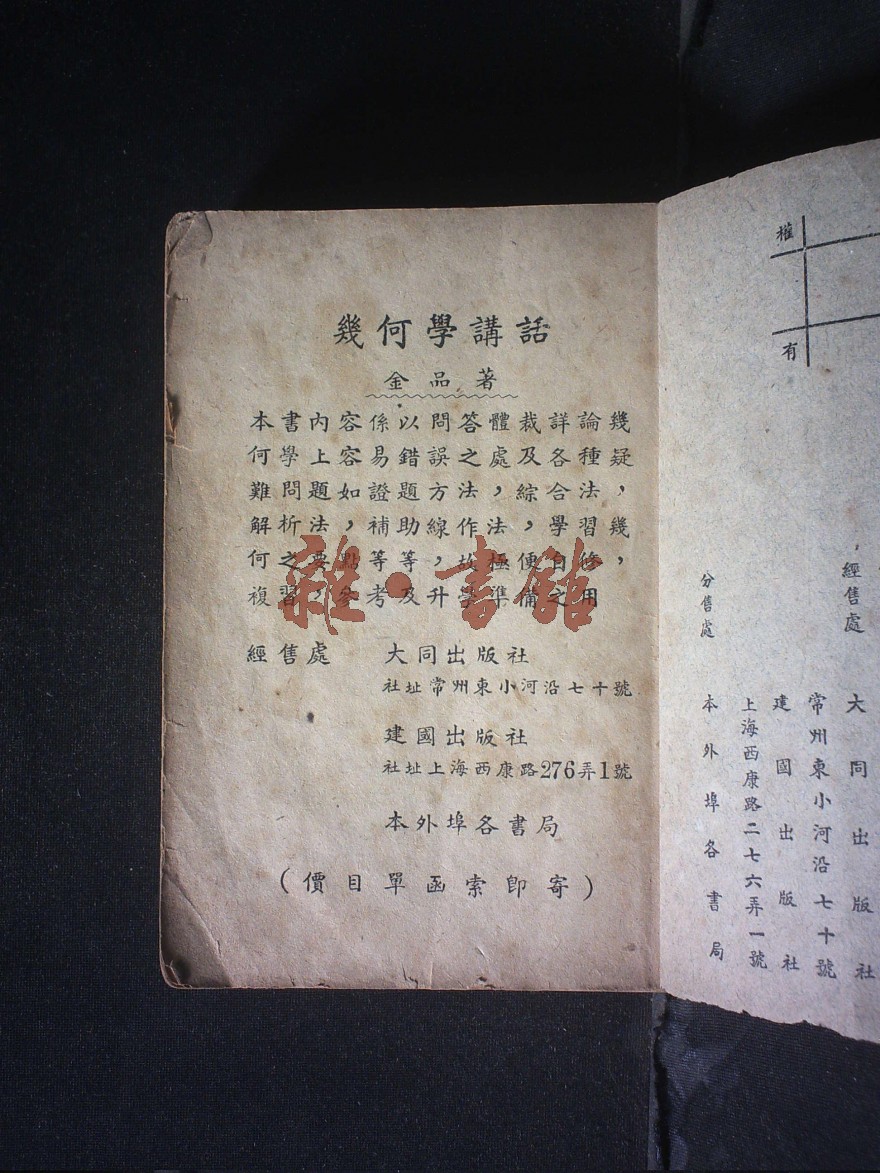 幾何學講話
金品著
本書內容係以問答體裁詳論幾
何學上容易錯誤之處及各種疑
難問題如證題方法，綜合法，
解析法，補助線，作法，學習幾
何之要點等等，故極便自修，
複習，參考及升學準備之用
經售處 大同出版社
社址常州東小河沿七十號
建國出版社
社址上海西康路276弄1號
本外埠各書局
(價目單函索即寄)
雜·書館
權
有
，經售處
大同出版社
常州東小河沿七十號
建國出版社
上海西康路二七六弄一號
分售處
本外埠各書局